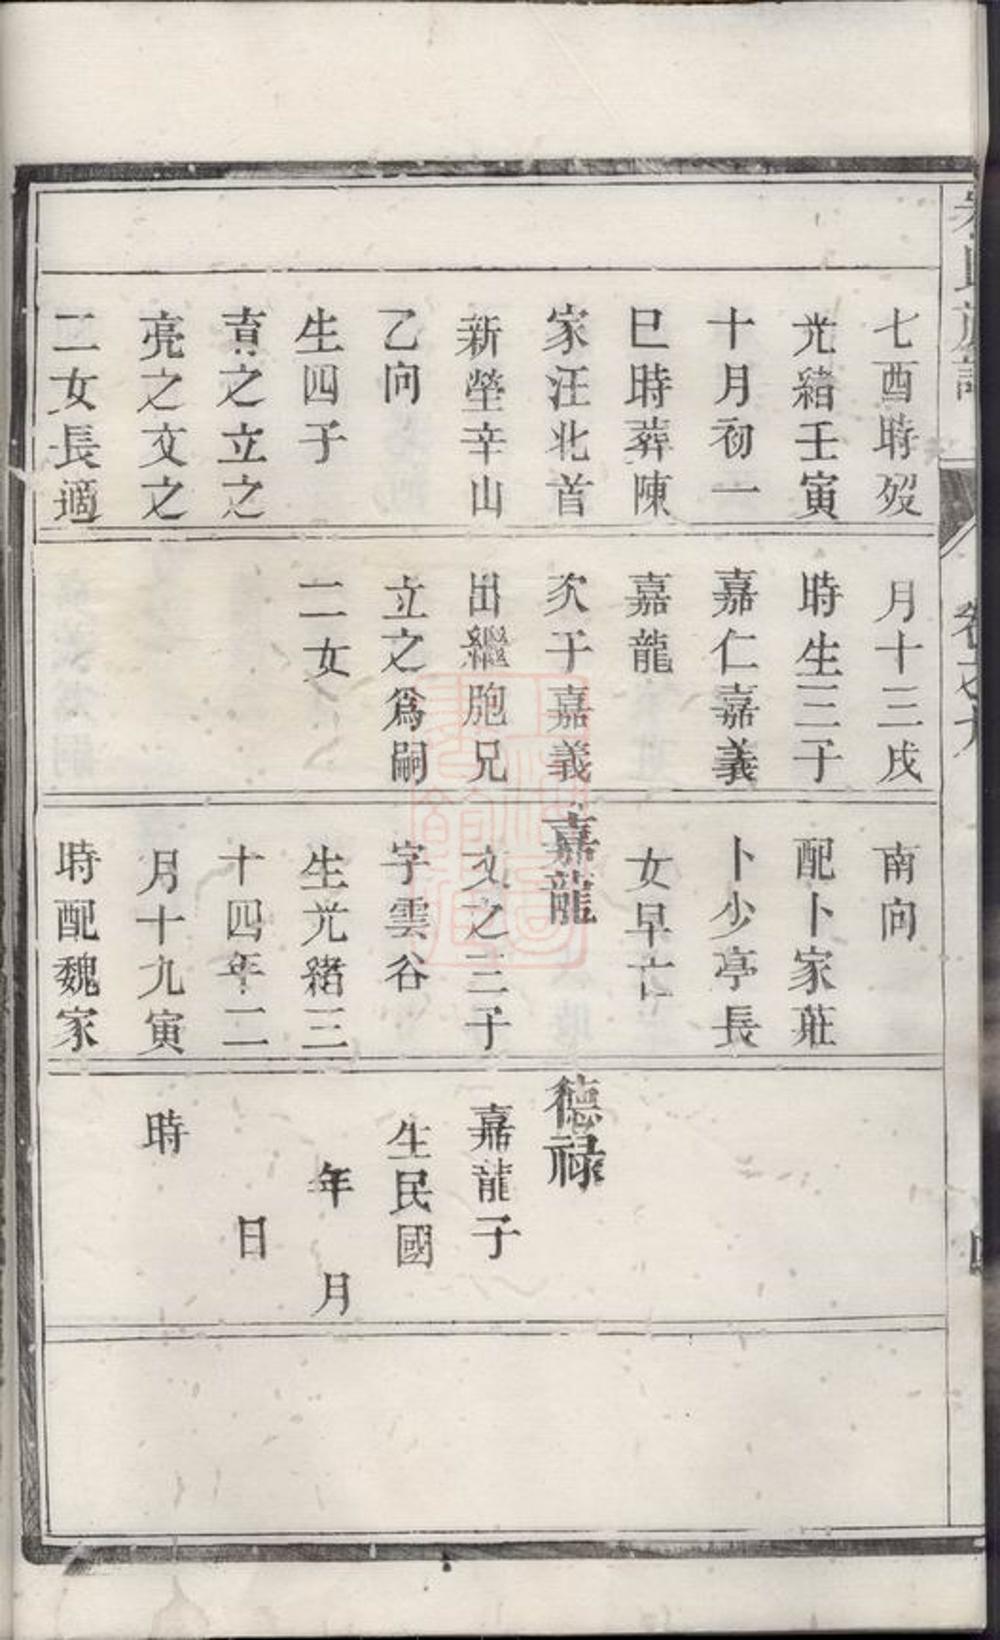 七酉時歿
光緒壬寅
十月初一
巳時葬陳
家汪北首
新塋辛山
乙向
生四子
直之立之
亮之文之
二女長適
月十三戌
時生三子
嘉仁嘉義
嘉龍
次子嘉義
出繼胞兄
立之爲嗣
二女
南向
配卜家莊
卜少亭長
女早亡
嘉龍
文之三子
字雲谷
生光緒三
十四年二
月十九寅
時配魏家
德祿
嘉龍子
生民國
年 月
日
時
氏族譜
卷之九